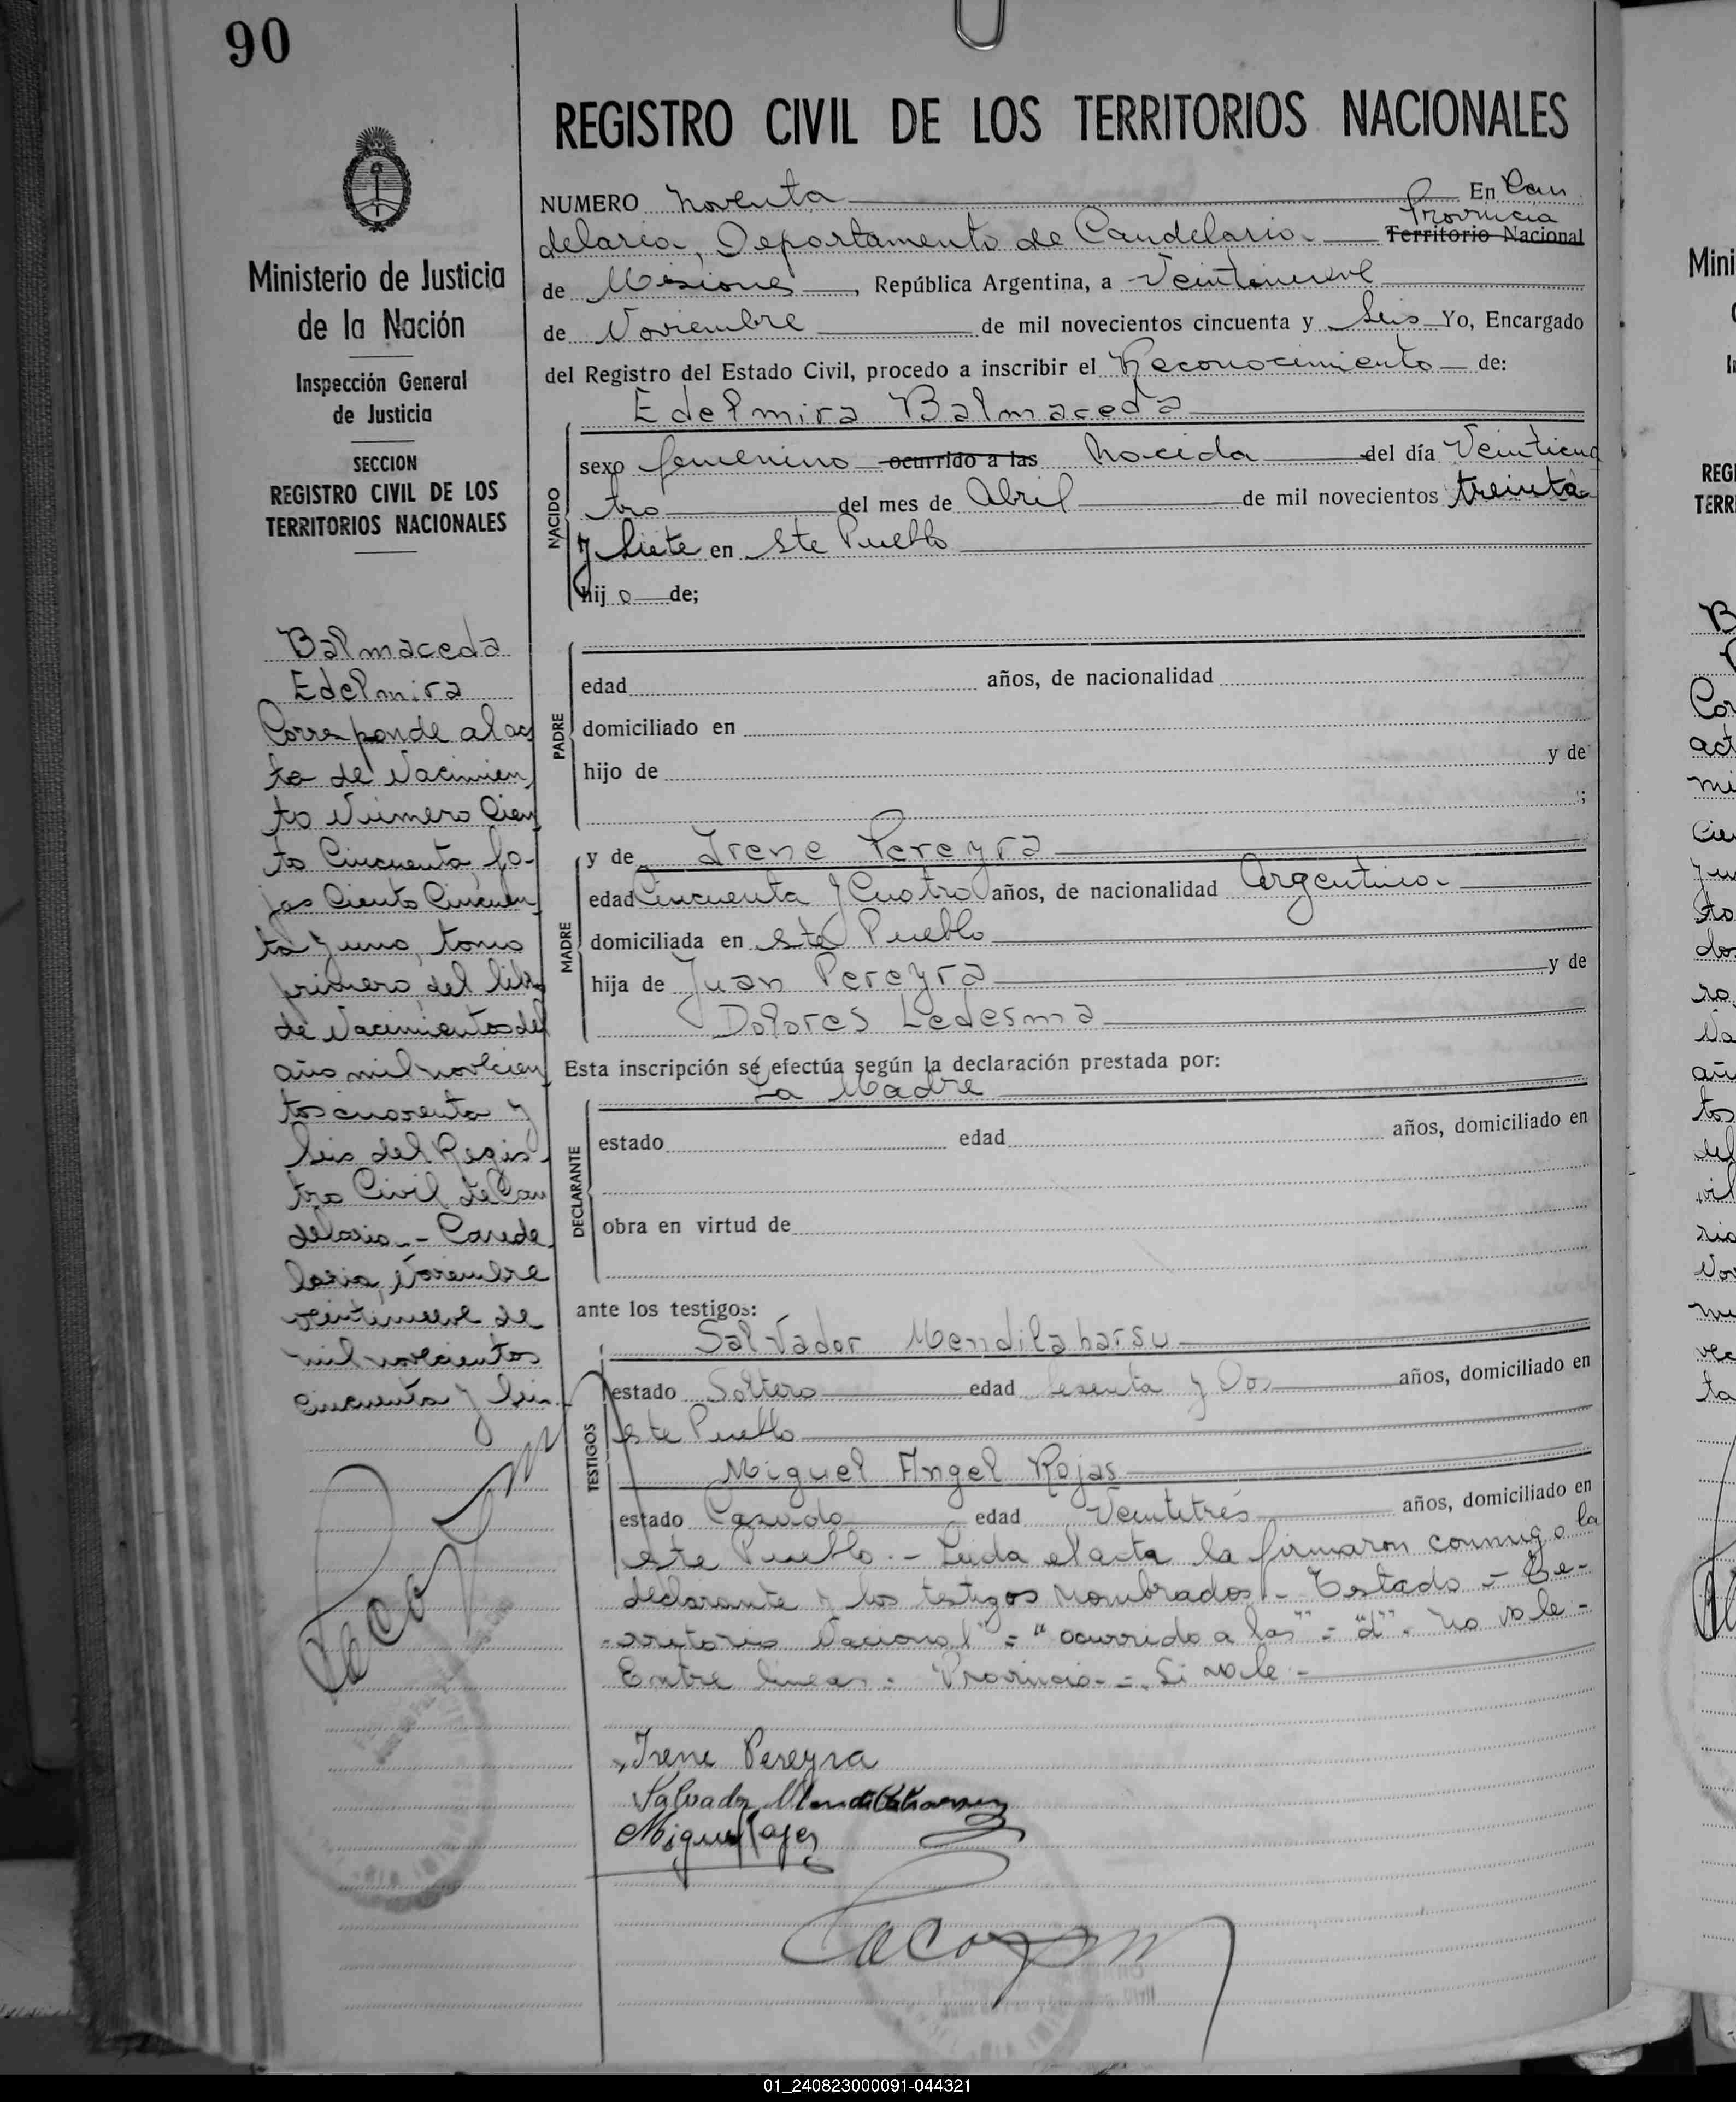 90
REGISTRO CIVIL DE LOS TERRITORIOS NACIONALES
Ministerio de Justicia
de la Nación
Inspección General
de Justicia
SECCION
REGISTRO CIVIL DE LOS
TERRITORIOS NACIONALES
Balmaceda
Edelmira
Corresponde al ac
ta de Nacimien
to Número Cien
to Cincuenta, fo-
jas Ciento Cincuen
ta y uno, tomo
primero del lib
de Nacimientos del
año mil novecien
tos cuarenta y
seis del Regis
tro Civil de Can
delaria.- Cande
laria, Noviembre
veintinueve de
mil novecientos
cincuenta y seis
NUMERO Noventa En Can
delaria, Departamento de Candelaria. Provincia Territorio Nacional
de Misiones, República Argentina, a Veintinueve
de Noviembre de mil novecientos cincuenta y Seis Yo, Encargado
del Registro del Estado Civil, procedo a inscribir el Reconocimiento de:
Edelmira Balmaceda
NACIDO
sexo femenino ocurrido a las Nacida del día Veinticua
tro del mes de Abril de mil novecientos treinta
y Siete en este Pueblo
hij a de;
PADRE
edad años, de nacionalidad
domiciliado en
hijo de y de
;
MADRE
y de Irene Pereyra
edad Cincuenta y Cuatro años, de nacionalidad Argentina.
domiciliada en este Pueblo
hija de Juan Pereyra y de
Dolores Ledesma
Esta inscripción se efectúa según la declaración prestada por:
La Madre
DECLARANTE
estado edad años, domiciliado en
obra en virtud de
ante los testigos:
TESTIGOS
Salvador Mendilaharsu
estado Soltero edad Sesenta y Dos años, domiciliado en
este Pueblo
Miguel Angel Rojas
estado Casado edad Veintitrés años, domiciliado en
este Pueblo.- Leida el acta la firmaron conmigo la
declarante y los testigos nombrados.- Testado = "Te-
rritorio Nacional" = "ocurrido a las" = "d". No vale -
Entre lineas: Provincia - =. Si vale -
Irene Pereyra
Salvador Mendilaharsu
Miguel Rojas
01_240823000091-044321